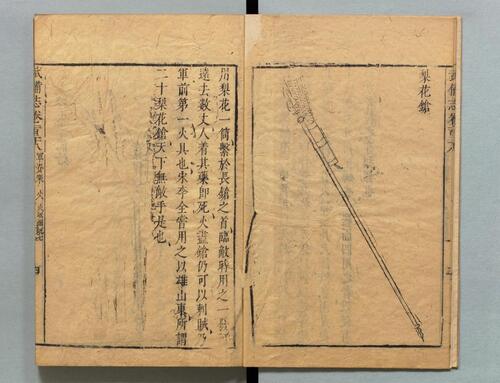 武備志卷百二十八
梨花鎗
用梨花一筒繫於長鎗之首臨敵時用之一發可
遠去數丈人着其藥即死火盡鎗仍可以刺賊乃
軍前第一火具也宋李全嘗用之以雄山東所謂
二十梨花鎗天下無敵手是也
武備志卷百二十八 軍資乘 火